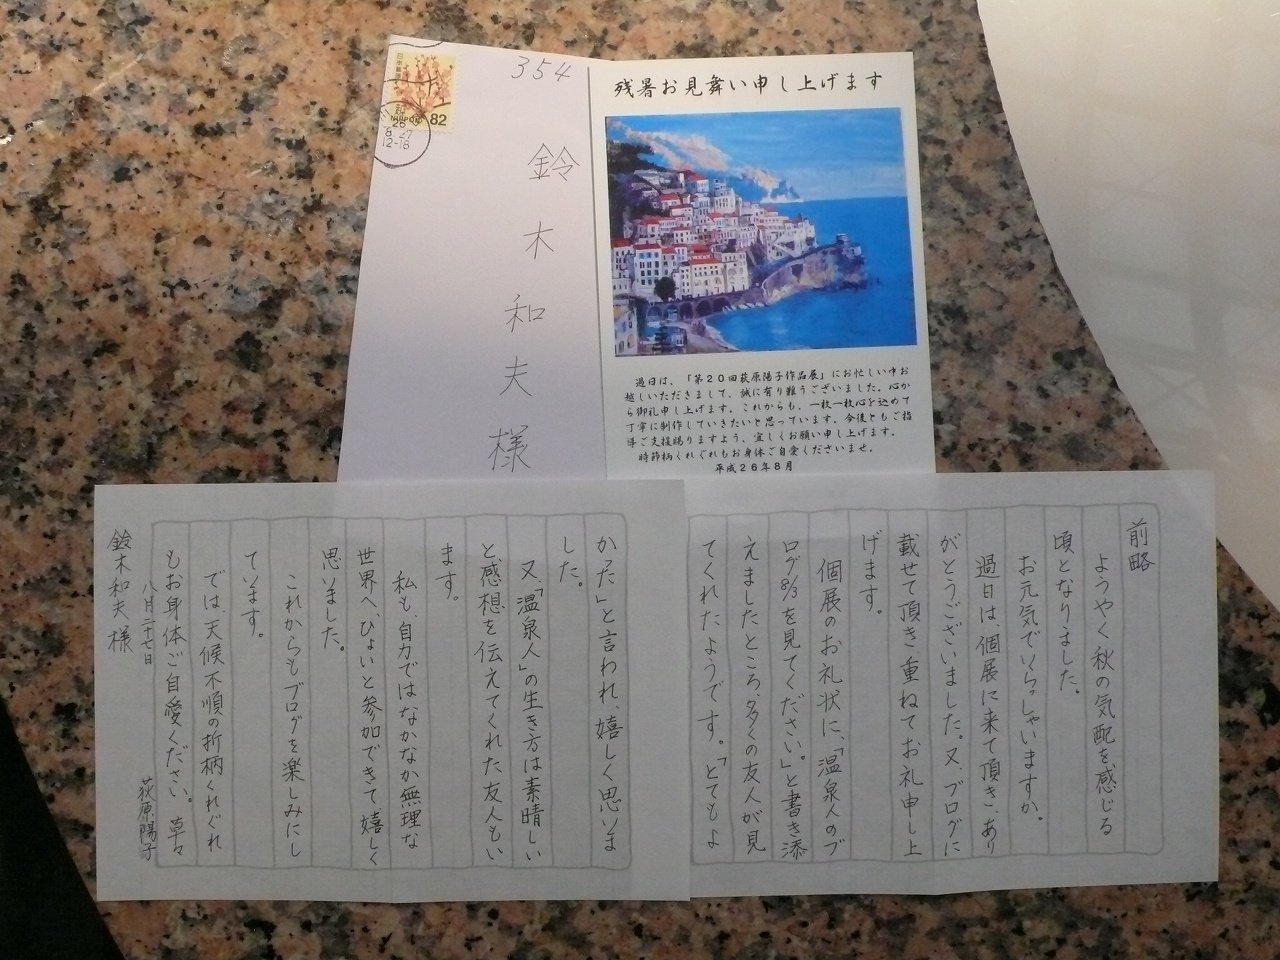 日本郵便
NIPPON
82
26
8.27
12-18
354
鈴木和夫様
残暑お見舞い申し上げます
過日は、「第20回荻原陽子作品展」にお忙しい中お
越しいただきまして、誠に有り難うございました。心か
ら御礼申し上げます。これからも、一枚一枚心を込めて
丁寧に制作していきたいと思っています。今後ともご指
導ご支援賜りますよう、宜しくお願い申し上げます。
時節柄くれぐれもお身体ご自愛くださいませ。
平成26年8月
前略
ようやく秋の気配を感じる
頃となりました。
お元気でいらっしゃいますか。
過日は、個展に来て頂き、あり
がとうございました。又、ブログに
載せて頂き重ねてお礼申し上
げます。
個展のお礼状に、「温泉人のブ
ログ8/3を見てください。」と書き添
えましたところ、多くの友人が見
てくれたようです。「とてもよ
かった」と言われ、嬉しく思いま
した。
又、「温泉人」の生き方は素晴しい
と感想を伝えてくれた友人もい
ます。
私も、自力ではなかなか無理な
世界へ、ひょいと参加できて、嬉しく
思いました。
これからもブログを楽しみにし
ています。
では、天候不順の折柄くれぐれ
もお身体ご自愛ください。草々
八月二十七日
荻原陽子
鈴木和夫様